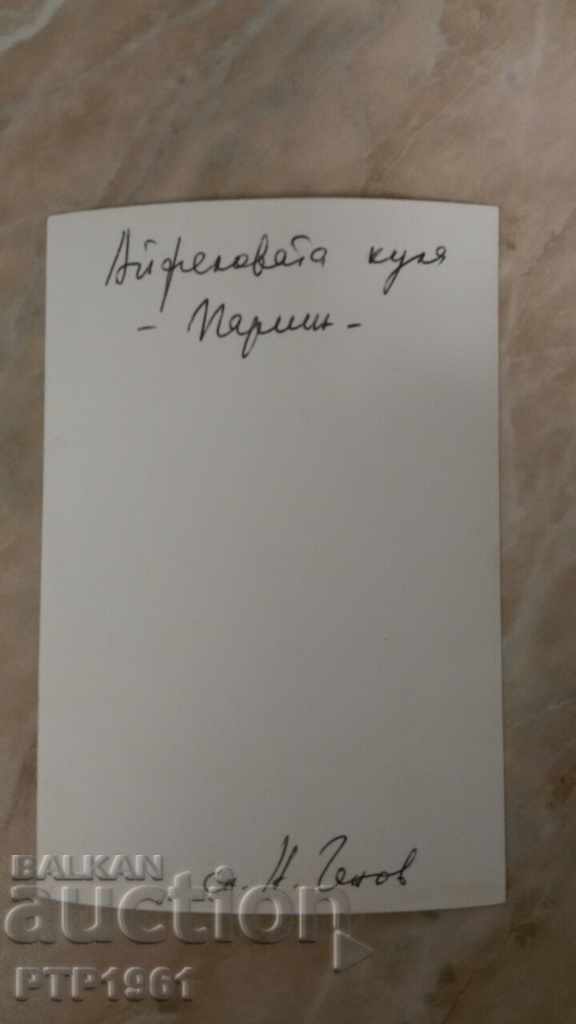 Айфеловата кула
- Париж -
сн. Н. Генов
BALKAN
auction
PTP1961